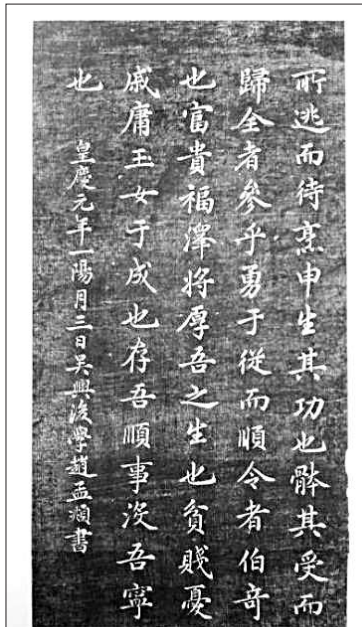 所逃而待烹申生其功也體其受而
歸全者參乎勇于從而順令者伯奇
也富貴福澤将厚吾之生也貧賤憂
戚庸玉女于成也存吾順事没吾寧
也
皇慶元年一陽月三日吳興後學趙孟頫書